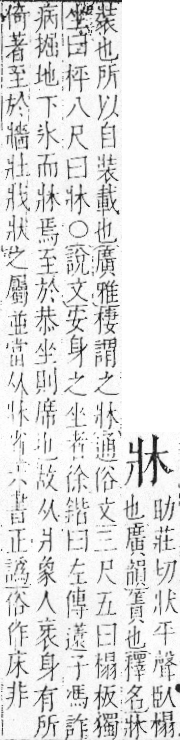 牀
助莊切狀平聲臥榻
也廣韻簀也釋名牀
裝也所以自裝載也廣雅棲謂之牀通俗文三尺五曰榻板獨
坐曰枰八尺曰牀○說文安身之坐者徐鍇曰左傳薳子馮詐
病掘地下氷而牀焉至於恭坐則席也故从爿象人衺身有所
倚著至於牆壯戕狀之屬並當从牀省六書正譌俗作床非